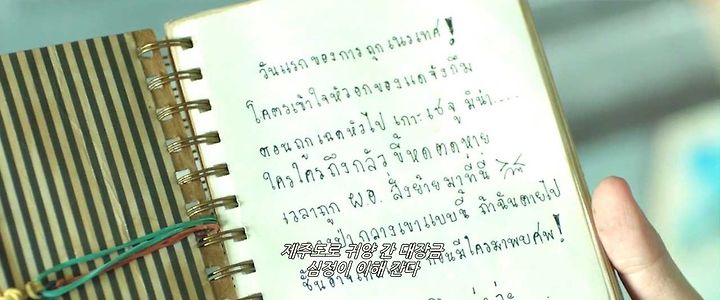 วันแรกของการถูกเนรเทศ!
โคตรเข้าใจหัวอกของแดจังกึม
ตอนถูกเฉดหัวไป เกาะเชจู มีน่า.....
ใครใครถึงกลัว ขี้หดตดหาย
เวลาถูก ผ.อ. สั่งย้ายมาที่นี่
ป่า กลางเขาแบบนี้ ถ้าฉันตายไป
제주도로 귀양 간 대장금
심정이 이해 간다
มีใครมาพบศพ!